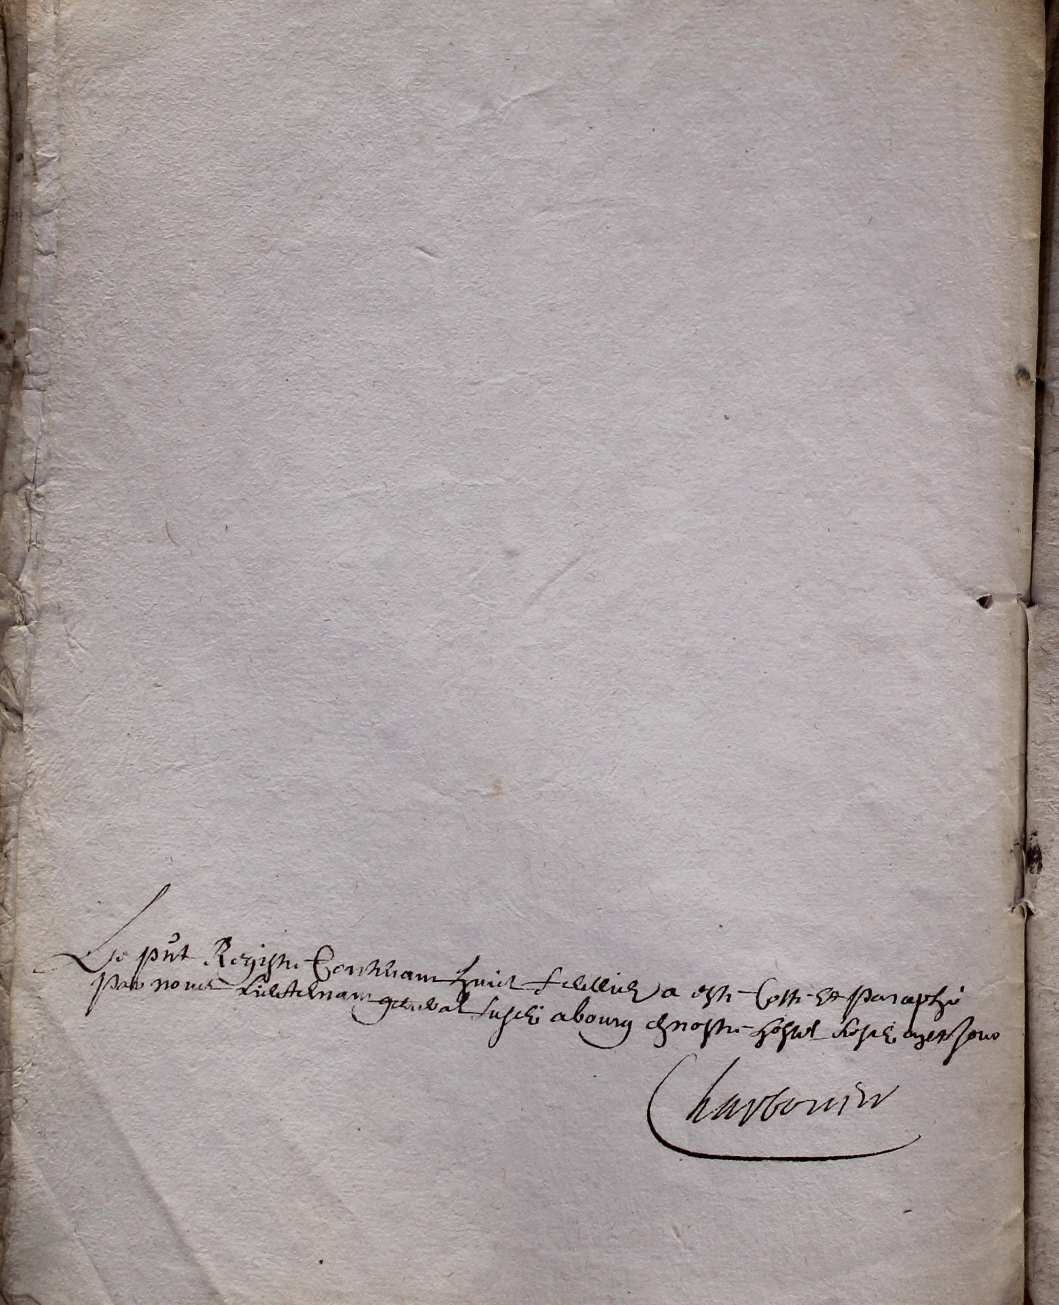 Le pñt Registre Contenant huict feuilletz a esté Cotté Et paraphé
par nous Lieutenant general susdit a bourg en nostre hostel les jour
Charbonier